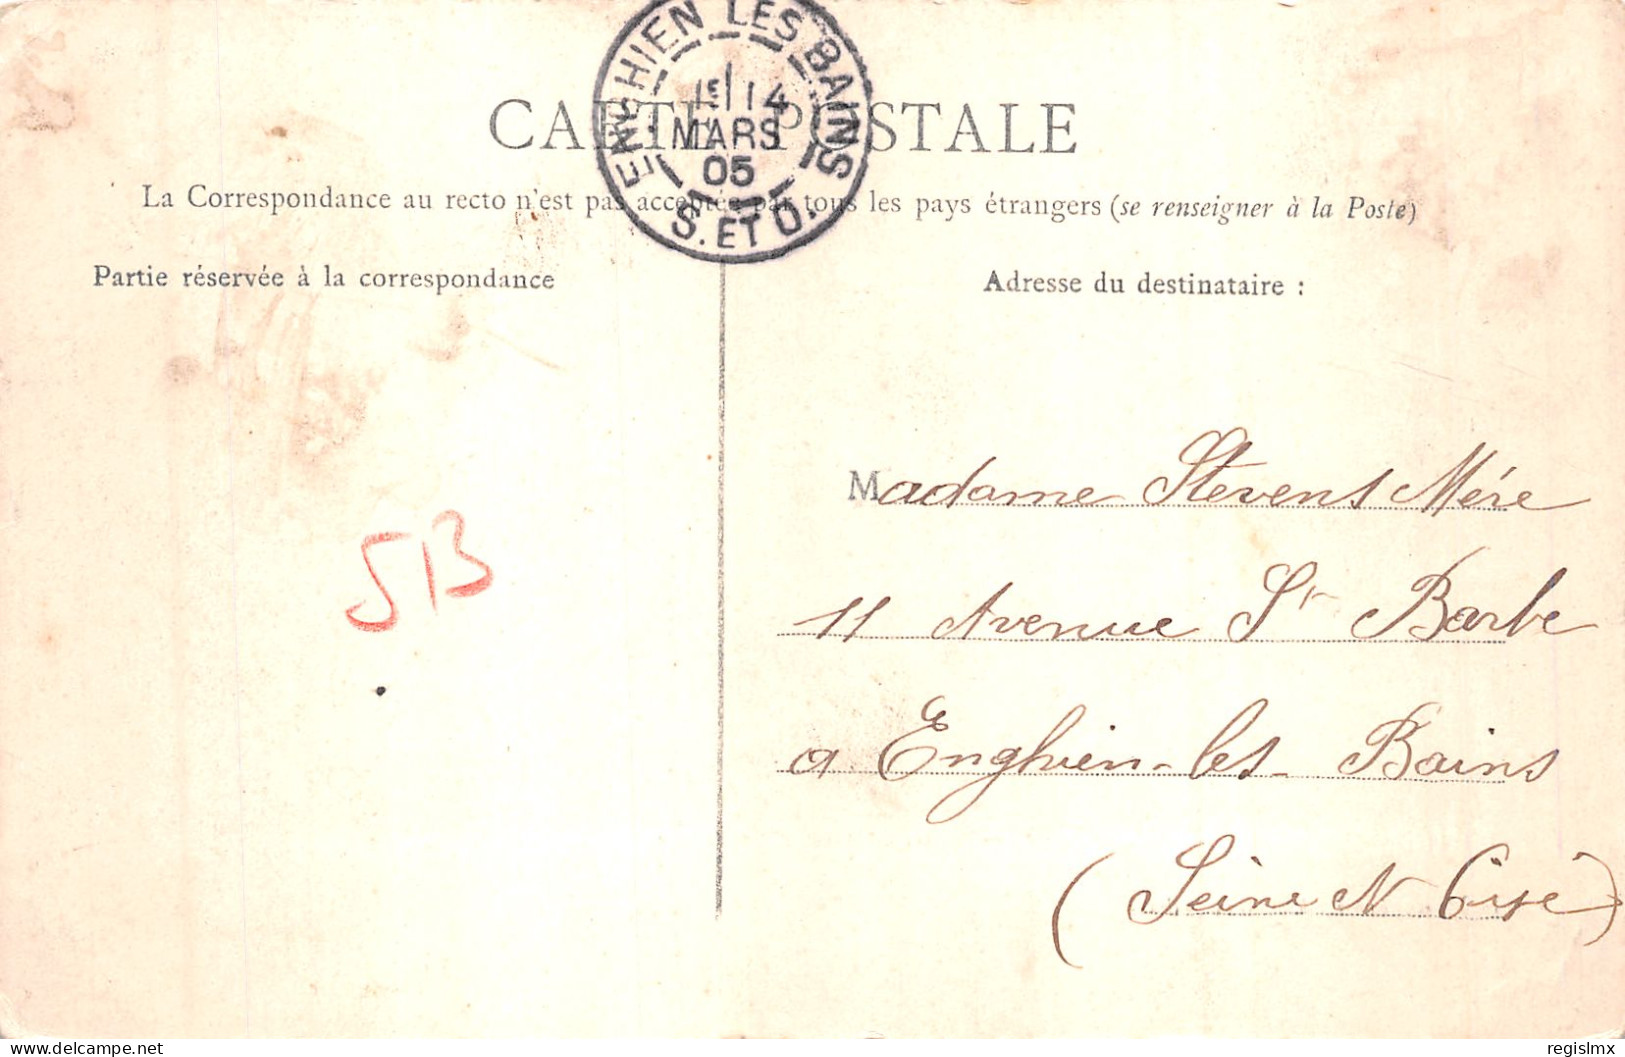 ENGHIEN LES BAINS
1E 14
MARS
05
S. ET O.
CARTE POSTALE
La Correspondance au recto n'est pas acceptée par tous les pays étrangers (se renseigner à la Poste)
Partie réservée à la correspondance
Adresse du destinataire :
Madame Stevens Mére
11 Avenue St Barbe
a Enghien-les-Bains
(Seine
513
Delcampe.net
regislmx